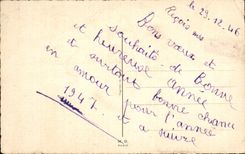 le 29.12.46
Reçois mes
Bons vœux et
souhaits de Bonne
et heureuse année
et surtout bonne chance
en amour pour l'année
1947 et a suivre